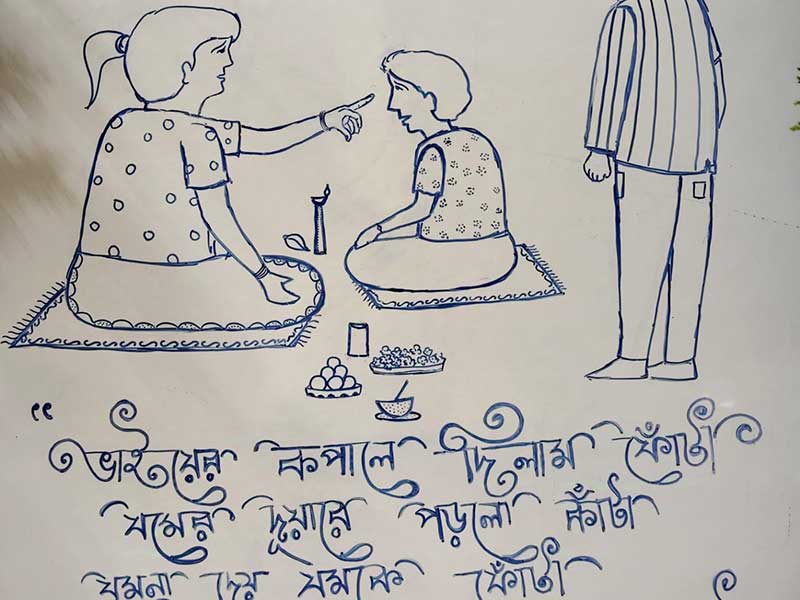 “ভাইয়ের কপালে দিলাম ফোঁটা
যমের দুয়ারে পড়লো কাঁটা
যমনা দেয় যমকে ফোঁটা